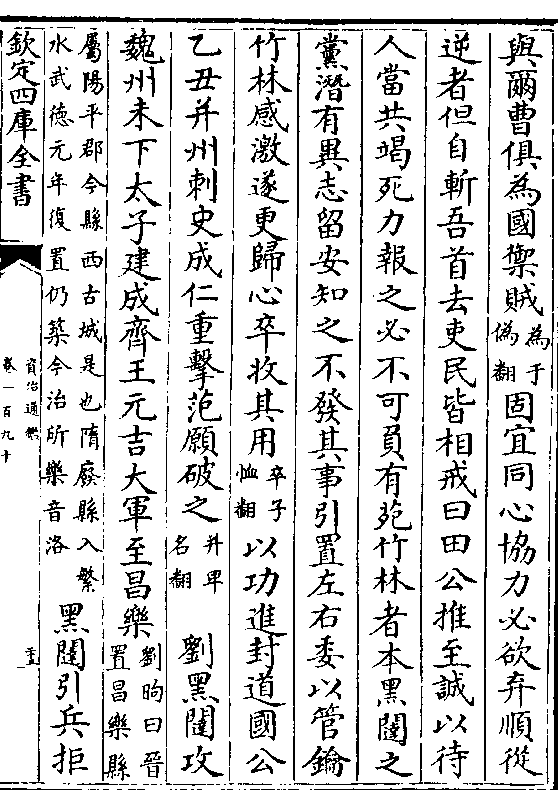 與爾曹俱為國禦賊為于偽翻固宜同心協力必欲弃順從
逆者但自斬吾首去吏民皆相戒曰田公推至誠以待
人當共竭死力報之必不可負有苑竹林者本黑闥之
黨潛有異志留安知之不發其事引置左右委以管鑰
竹林感激遂更歸心卒收其用卒子恤翻以功進封道國公
乙丑并州刺史成仁重擊范願破之并卑名翻劉黑闥攻
魏州未下太子建成齊王元吉大軍至昌樂劉昫曰晉置昌樂縣
屬陽平郡今縣西古城是也隋廢縣入繁水武德元年復置仍築今治所樂音洛黑闥引兵拒
欽定四庫全書
資治通鑑
卷一百九十